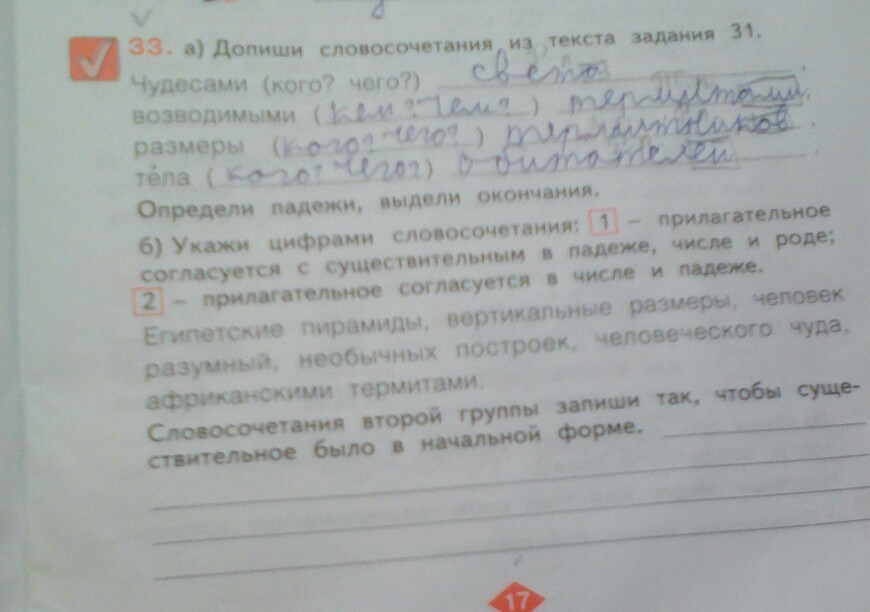 33. а) Допиши словосочетания из текста задания 31.
Чудесами (кого? чего?) света
возводимыми (кем? чем?) термитами.
размеры (кого? чего?) термитников.
тéла (кого? чего?) обитателей
Определи падежи, выдели окончания.
б) Укажи цифрами словосочетания: 1 – прилагательное
согласуется с существительным в падеже, числе и роде;
2 – прилагательное согласуется в числе и падеже.
Египетские пирамиды, вертикальные размеры, человек
разумный, необычных построек, человеческого чуда,
африканскими термитами.
Словосочетания второй группы запиши так, чтобы суще-
ствительное было в начальной форме.
17